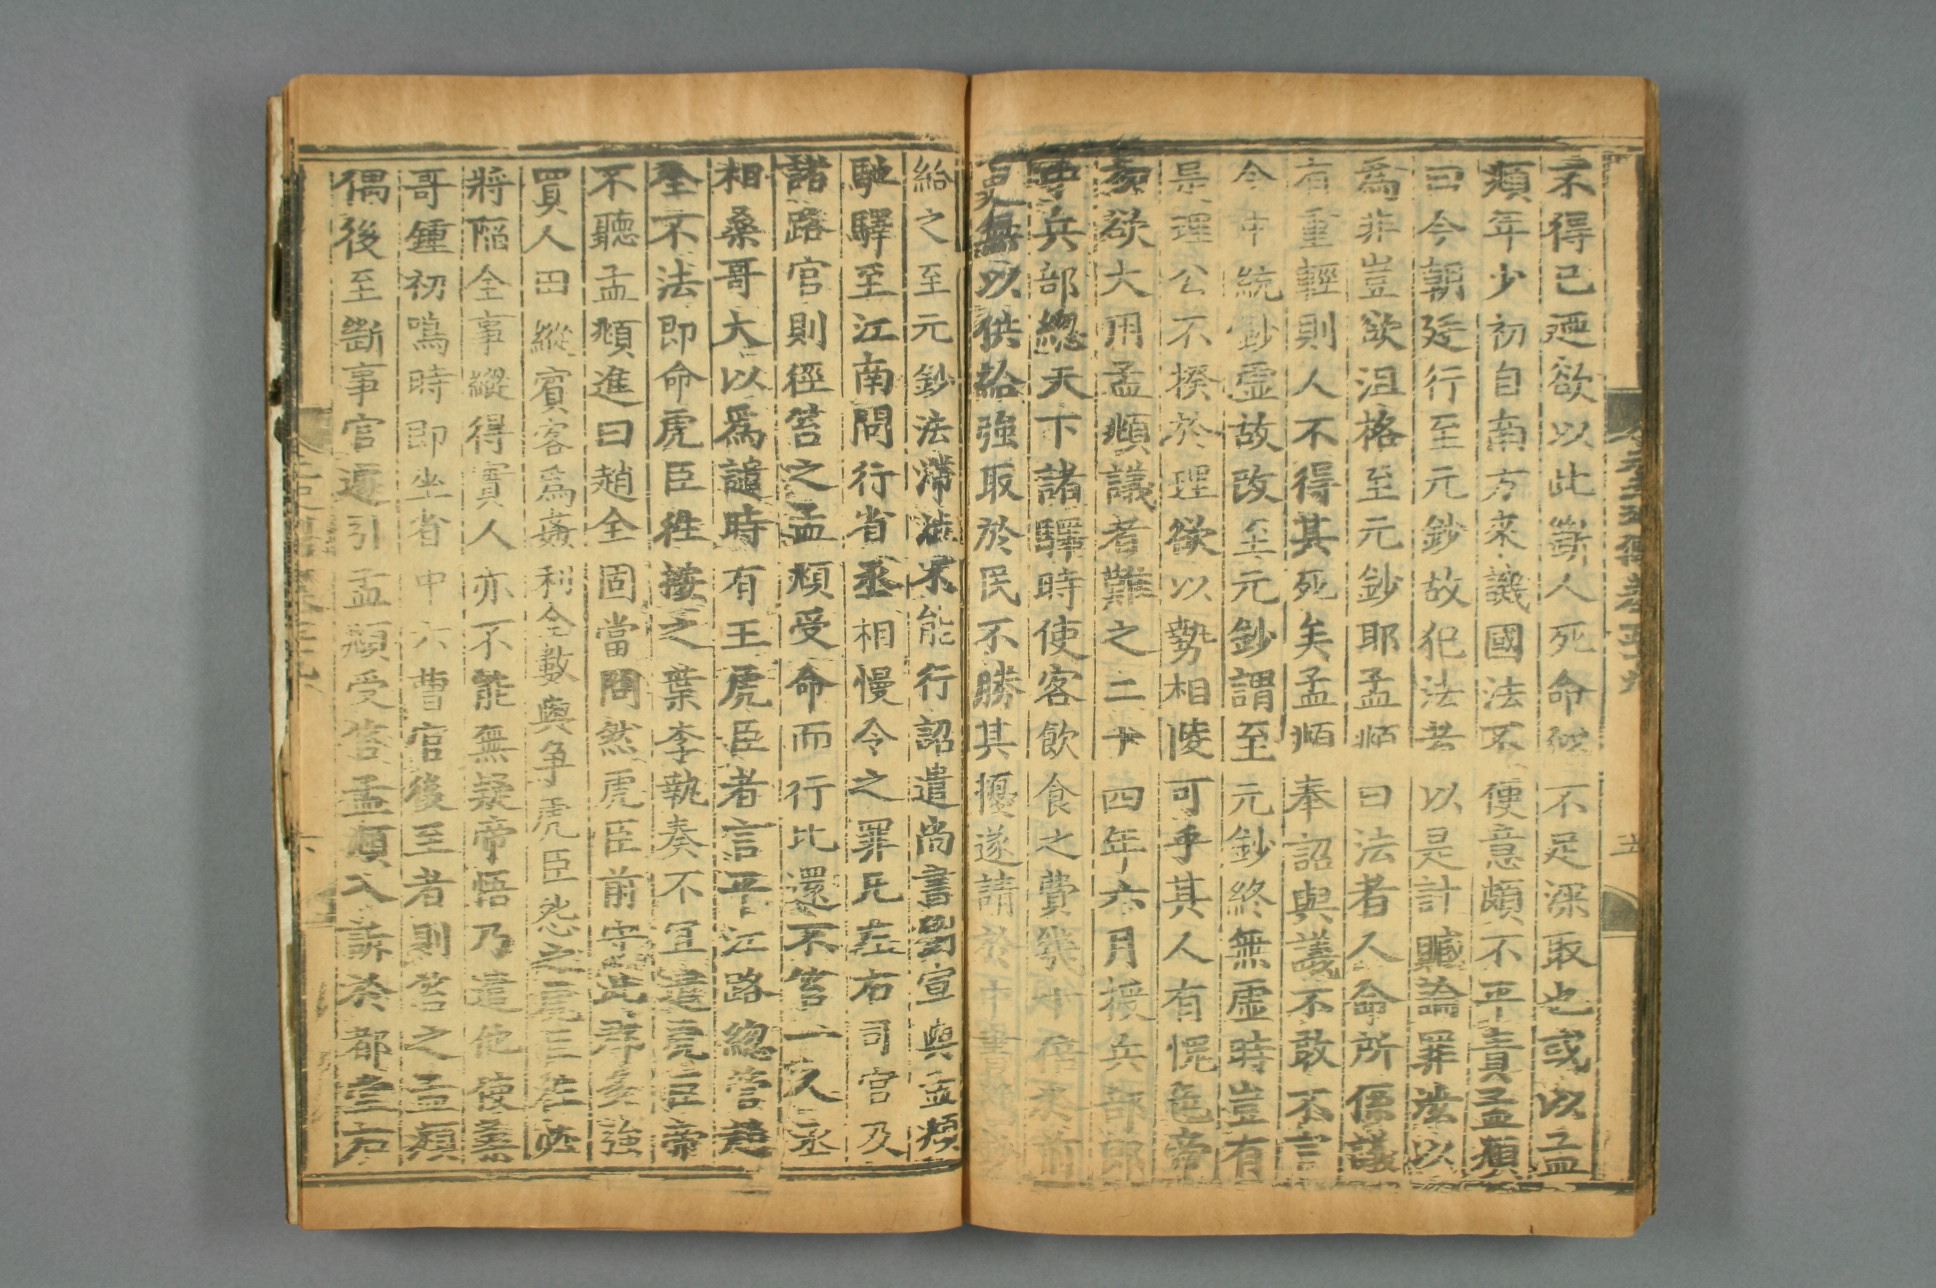 元史列傳卷五十九
五
不得已迺欲以此斷人死命似不足深取也或以孟
頫年少初自南方來譏國法不便意頗不平責孟頫
曰今朝廷行至元鈔故犯法者以是計贓論罪汝以
為非豈欲沮格至元鈔耶孟頫曰法者人命所係議
有重輕則人不得其死矣孟頫奉詔與議不敢不言
今中統鈔虛故改至元鈔謂至元鈔終無虛時豈有
是理公不揆於理欲以勢相陵可乎其人有愧色帝
初欲大用孟頫議者難之二十四年六月授兵部郎
中兵部總天下諸驛時使客飲食之費幾十倍於前
吏無以供給強取於民不勝其擾遂請於中書增鈔
給之至元鈔法滯澁不能行詔遣尚書劉宣與孟頫
馳驛至江南問行省丞相慢令之罪凡左右司官及
諸路官則徑笞之孟頫受命而行比還不笞一人丞
相桑哥大以爲譴時有王虎臣者言平江路總管趙
全不法即命虎臣往按之葉李執奏不宜遣虎臣帝
不聽孟頫進曰趙全固當問然虎臣前守此郡多強
買人田縱賓客爲姦利全數與爭虎臣怨之虎臣往必
將陷全事縱得實人亦不能無疑帝悟乃遣他使桑
哥鍾初鳴時即坐省中六曹官後至者則笞之孟頫
偶後至斷事官遽引孟頫受笞孟頫入訴於都堂右
六